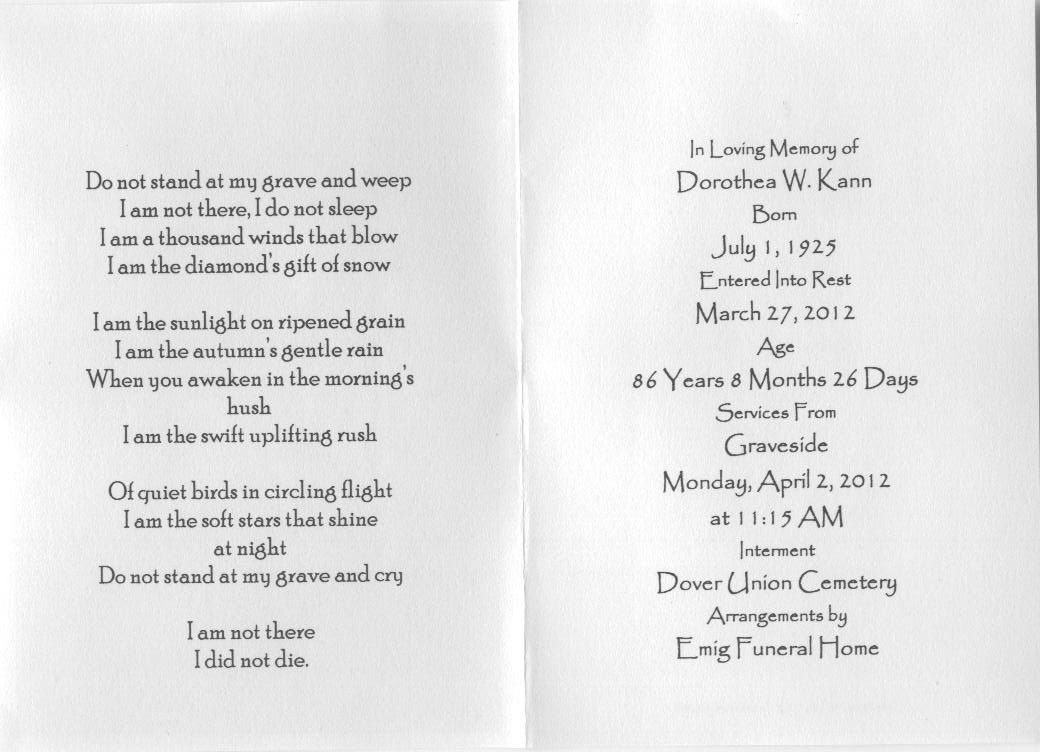 Do not stand at my grave and weep
I am not there, I do not sleep
I am a thousand winds that blow
I am the diamond's gift of snow
I am the sunlight on ripened grain
I am the autumn's gentle rain
When you awaken in the morning's
hush
I am the swift uplifting rush
Of quiet birds in circling flight
I am the soft stars that shine
at night
Do not stand at my grave and cry
I am not there
I did not die.
In Loving Memory of
Dorothea W. Kann
Born
July 1, 1925
Entered Into Rest
March 27, 2012
Age
86 Years 8 Months 26 Days
Services From
Graveside
Monday, April 2, 2012
at 11:15 AM
Interment
Dover Union Cemetery
Arrangements by
Emig Funeral Home